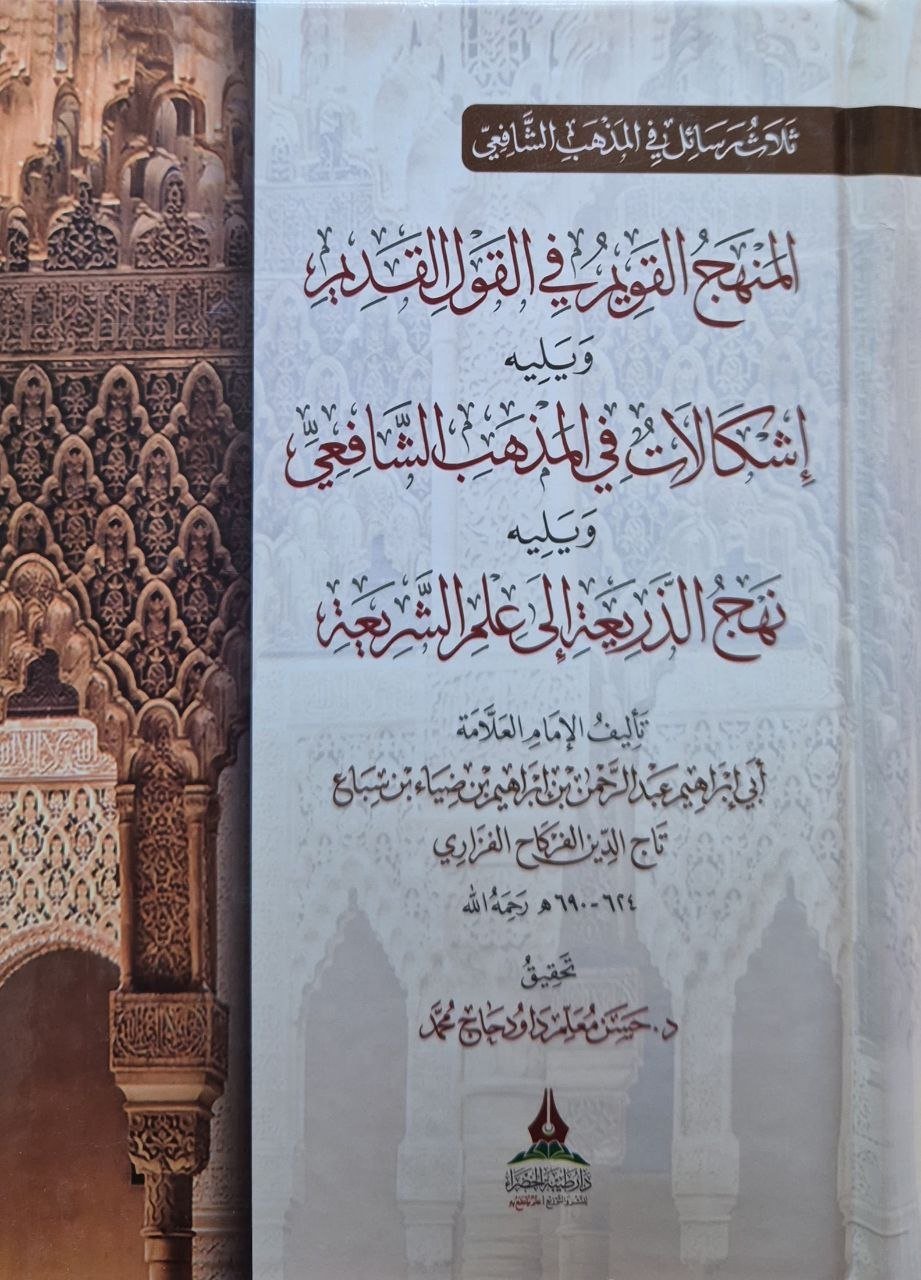 ثَلَاثُ رَسَائِل فِي المَذْهَبِ الشَّافِعِيّ
المَنْهَجُ القَوِيمُ فِي القَوْلِ القَدِيمِ
وَيَلِيه
إِشْكَالَاتٌ فِي المَذْهَبِ الشَّافِعِيِّ
وَيَلِيه
نَهْجُ الذَّرِيعَةِ إِلَى عِلْمِ الشَّرِيعَةِ
تَأْلِيفُ الإِمَامِ العَلَّامَة
أَبِي إِبْرَاهِيم عَبْد الرَّحْمٰن بْن إِبْرَاهِيم بْن ضِيَاء بْن سِبَاع
تَاج الدِّين الفِرْكَاح الفَزَارِي
٦٢٤-٦٩٠هـ رَحِمَهُ الله
تَحْقِيقُ
د. حَسَن مُعَلِّم دَاوُد حَاج مُحَمَّد
دَارُ طَيْبَةَ الخَضْرَاء
لِلنَّشْرِ وَالتَّوْزِيع | عِلْمٌ يُنْتَفَعُ بِهِ